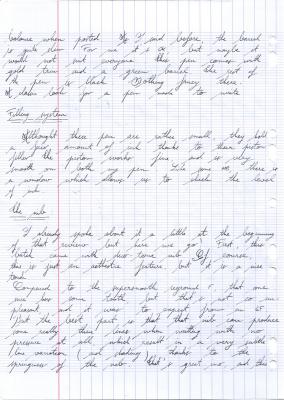 balance when posted. As I said before, the barrel
is quite slim. For me it's ok but maybe it
would not suit everyone. This pen comes with
gold trim and a green barrel. The rest of
the pen is black. Nothing fancy there.
A classic look for a pen made to write
Filling system
Althought these pen are rather small, they hold
a fair amount of ink thanks to their piston
filler. The piston works fine and is very
smooth on both my pen. Like some, there is
a window which allows us to check the level
of ink
The nib
I already spoke about it a little at the beginning
of that review but here we go! First this
came with duo-tone nib. Of course
this is just an aesthetic feature but it is a nice
touch
Compared to the, that one
has some but that's not so
pleasant and it was to expect from an EF
But the best part is that that nib can produce
some really thin lines when writing with no
pressure at all which result in a very subtle
line variation (and shading) thanks to the
springyness of the nib. That's great no, and this